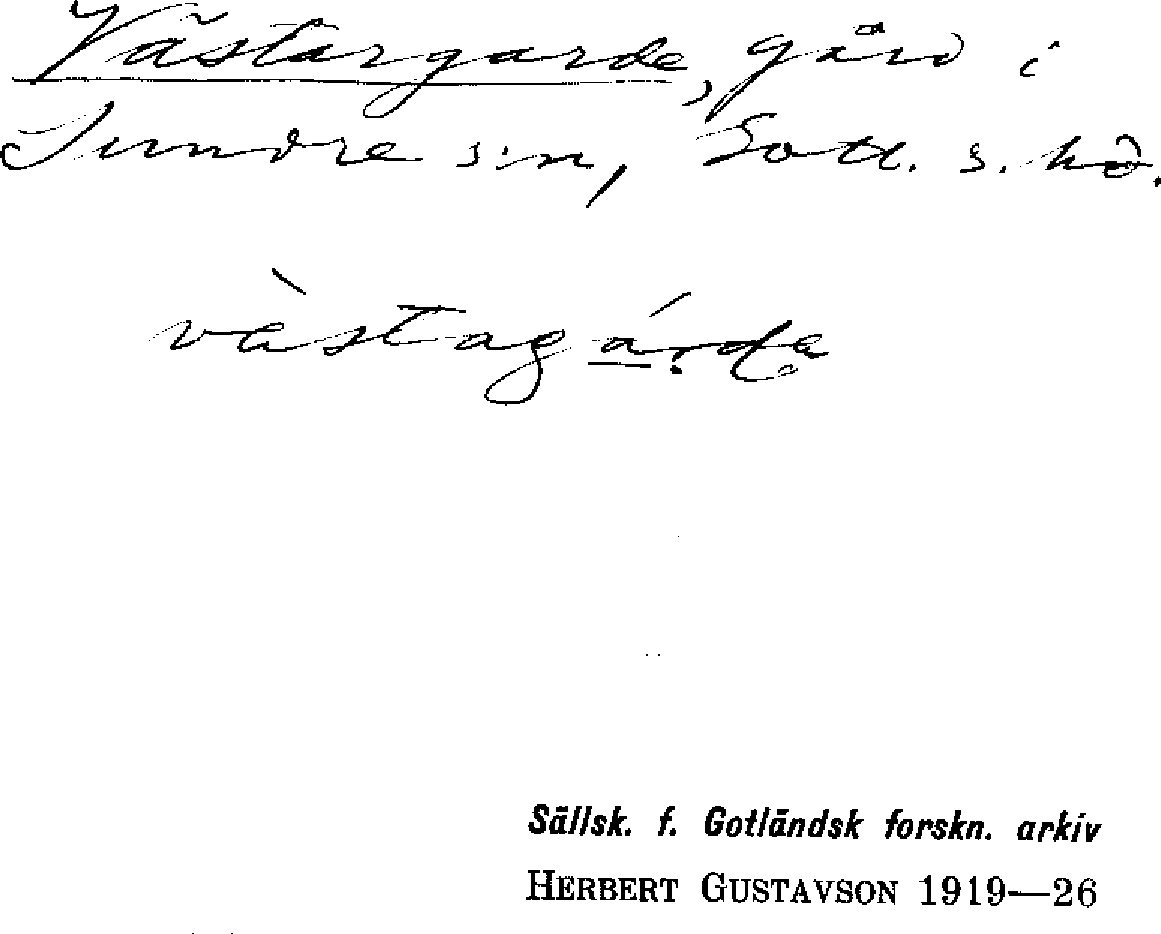 Västargarde, gård i
Sundre s:n, Gotl. s. hd.
västagárde
Sällsk. f. Gotländsk forskn. arkiv
HERBERT GUSTAVSON 1919—26